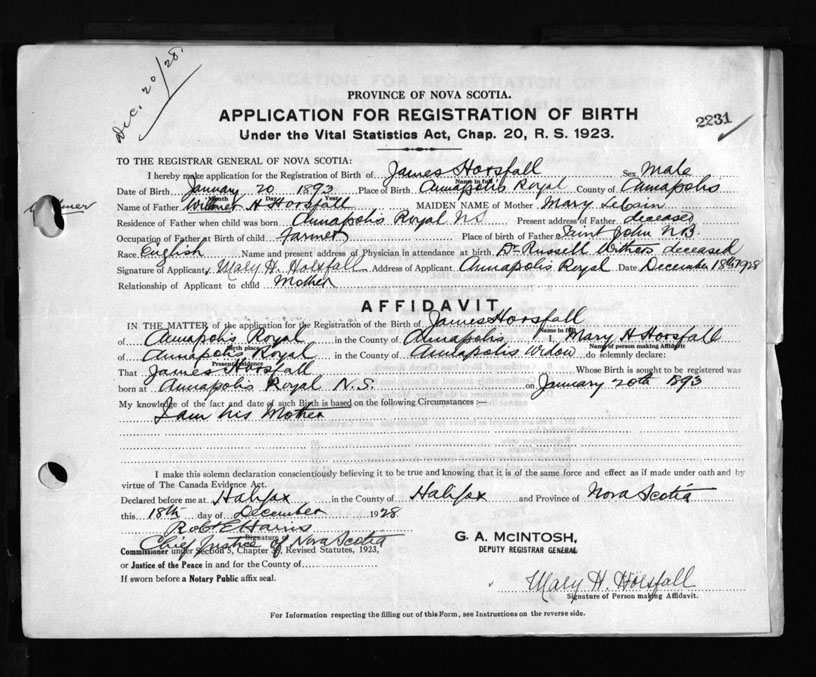 Dec. 20/28.
PROVINCE OF NOVA SCOTIA.
APPLICATION FOR REGISTRATION OF BIRTH
2231
Under the Vital Statistics Act, Chap. 20, R. S. 1923.
TO THE REGISTRAR GENERAL OF NOVA SCOTIA:
I hereby make application for the Registration of Birth of James Horsfall Sex Male
Name in full
Date of Birth January 20 1893 Place of Birth Annapolis Royal County of Annapolis
Month Day Year
Name of Father H Horsfall MAIDEN NAME of Mother Mary
Residence of Father when child was born Annapolis Royal NS Present address of Father deceased
Occupation of Father at Birth of child Farmer Place of birth of Father Saint John N.B.
Race English Name and present address of Physician in attendance at birth Dr Russell Withers deceased
Signature of Applicant Mary H. Horsfall Address of Applicant Annapolis Royal Date December 18th 1928
Relationship of Applicant to child Mother
AFFIDAVIT
IN THE MATTER of the application for the Registration of the Birth of James Horsfall
Name in full
of Annapolis Royal in the County of Annapolis I, Mary H Horsfall
Name of person making Affidavit
of Annapolis Royal in the County of Annapolis Widow do solemnly declare:
Present Residence
That James Horsfall Whose Birth is sought to be registered was
born at Annapolis Royal N.S. on January 20th 1893
My knowledge of the fact and date of such Birth is based on the following Circumstances :—
I am his Mother
I make this solemn declaration conscientiously believing it to be true and knowing that it is of the same force and effect as if made under oath and by
virtue of The Canada Evidence Act.
Declared before me at Halifax in the County of Halifax and Province of Nova Scotia
this 18th day of December 1928
Robt E Harris
Signature of
Chief Justice of Nova Scotia
Commissioner under Section 5, Chapter 3, Revised Statutes, 1923,
or Justice of the Peace in and for the County of
If sworn before a Notary Public affix seal.
G. A. McINTOSH,
DEPUTY REGISTRAR GENERAL
Mary H. Horsfall
Signature of Person making Affidavit.
For Information respecting the filling out of this Form, see Instructions on the reverse side.